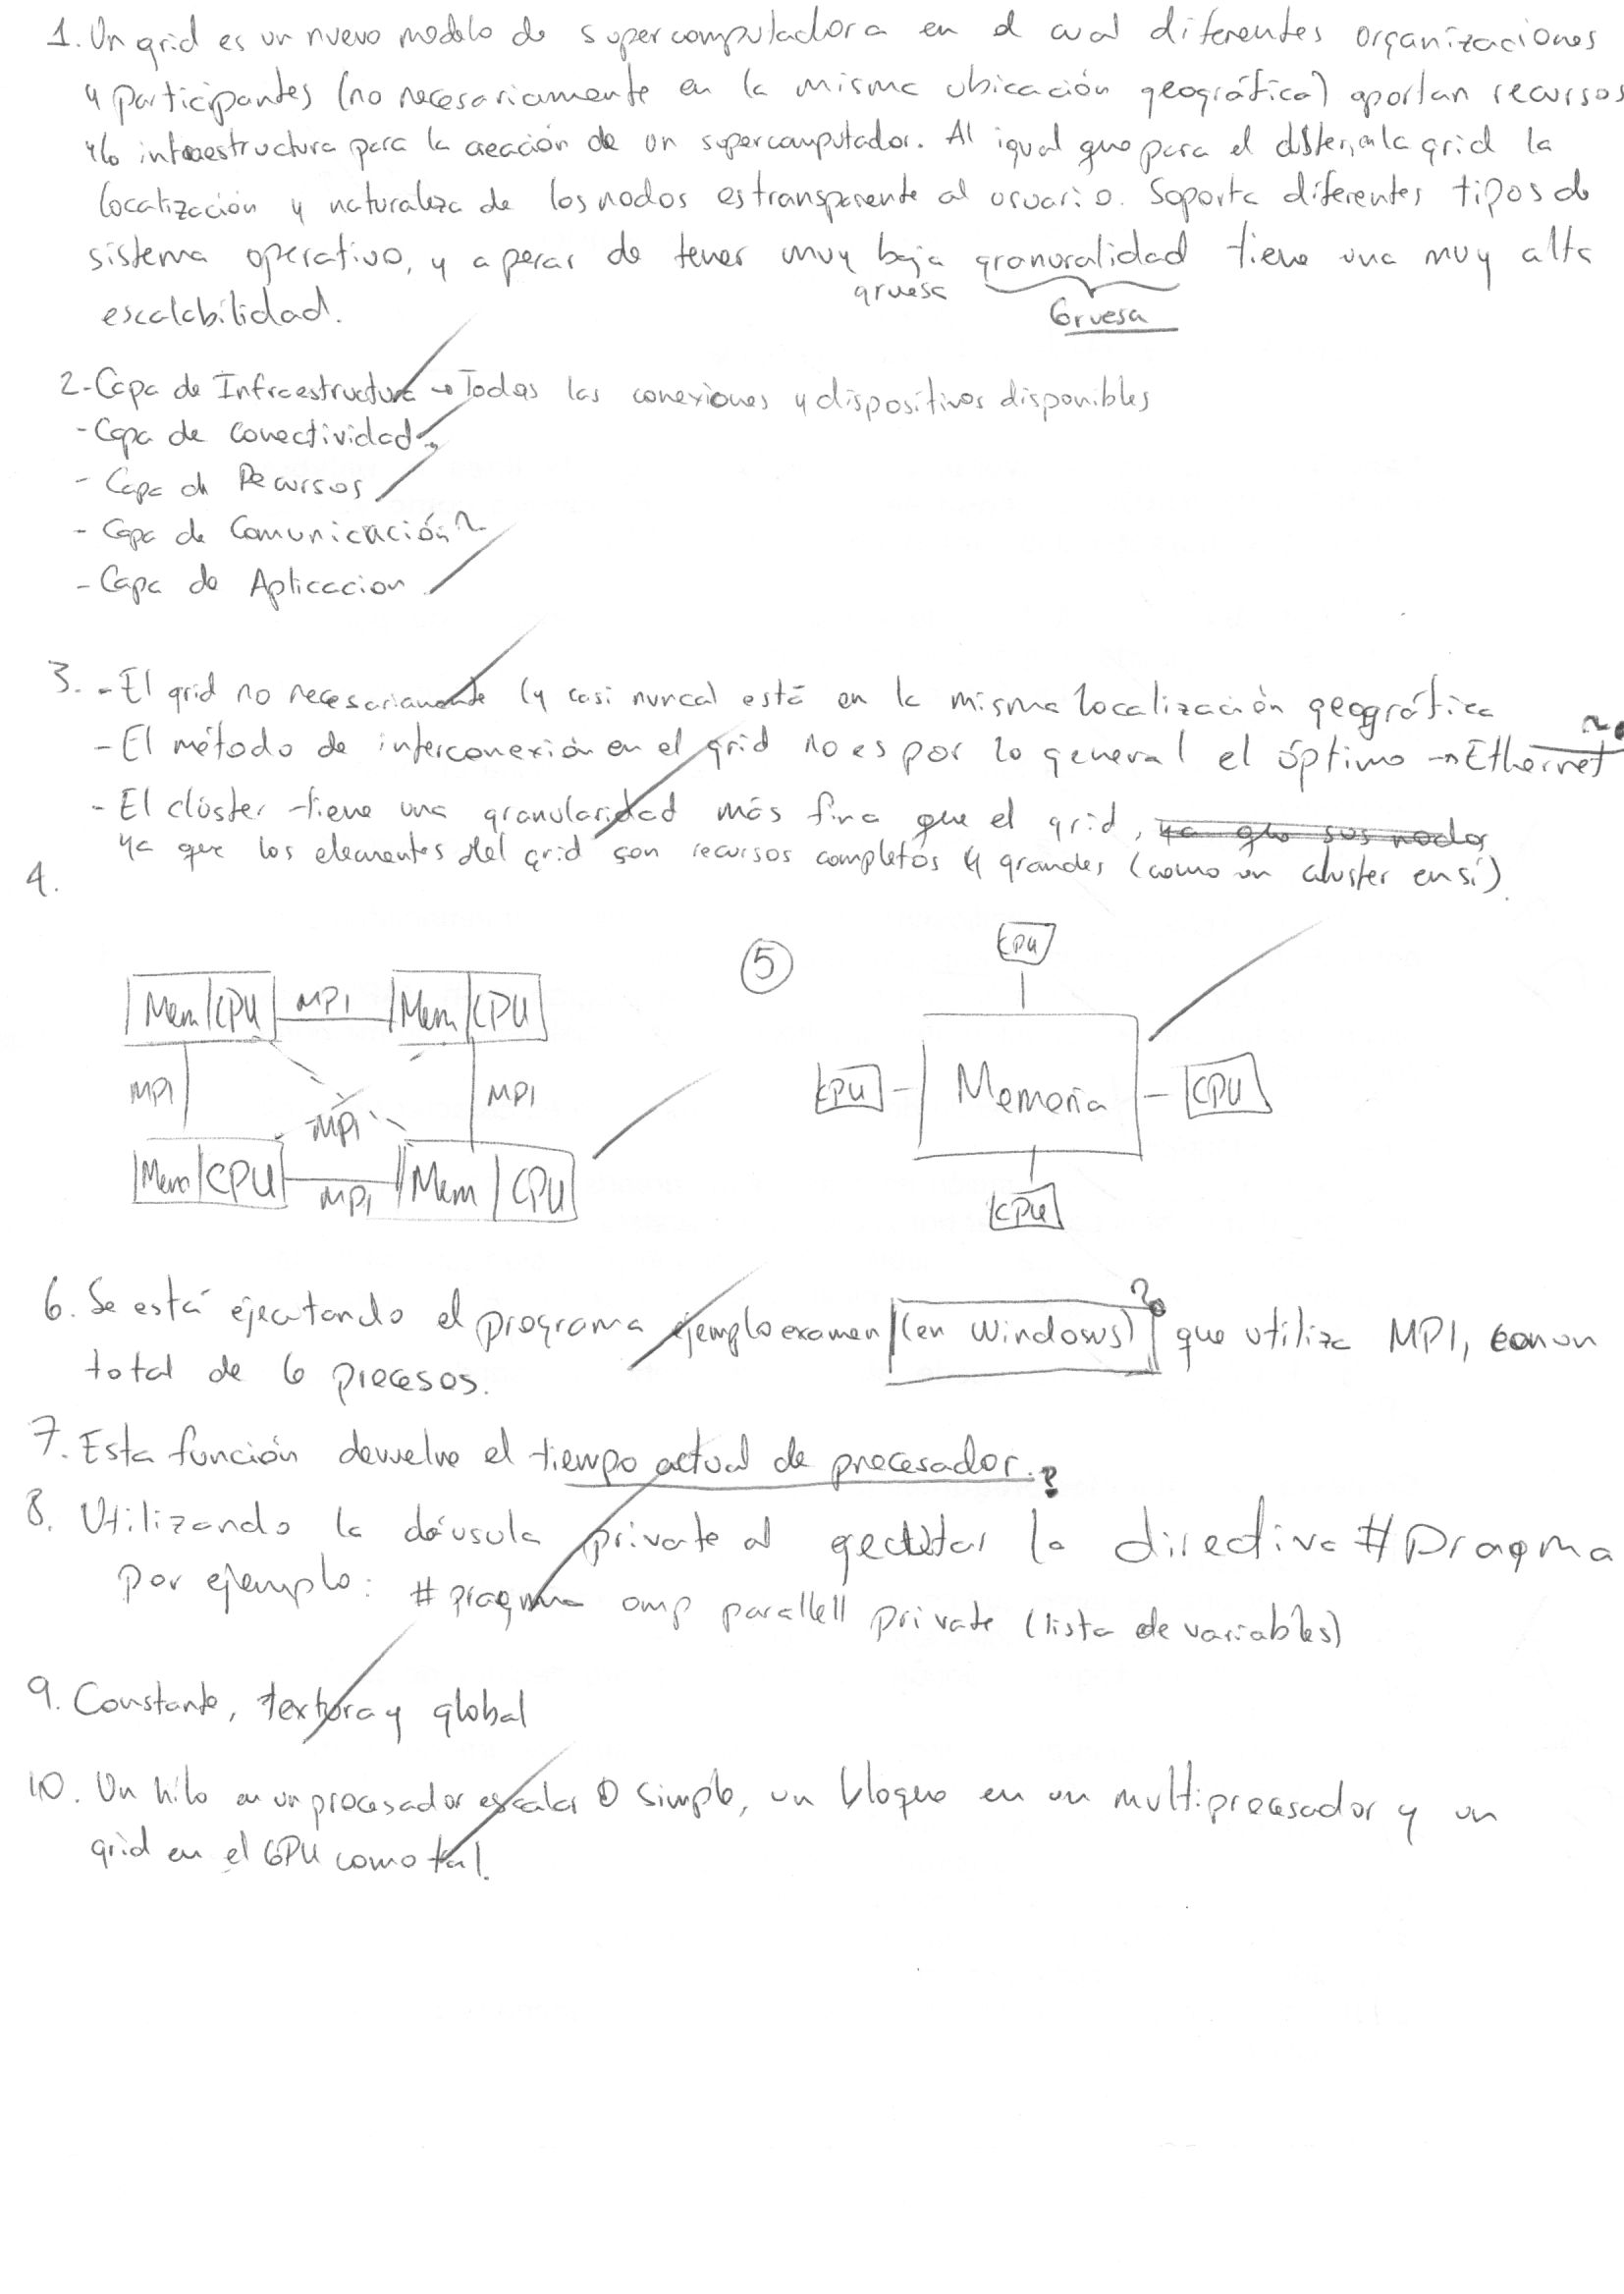 1. Un grid es un nuevo modelo de supercomputadora en el cual diferentes organizaciones
y participantes (no necesariamente en la misma ubicación geográfica) aportan recursos
y/o infraestructura para la creación de un supercomputador. Al igual que para el clúster, en la grid la
localización y naturaleza de los nodos es transparente al usuario. Soporta diferentes tipos de
sistema operativo, y a pesar de tener muy baja granuralidad tiene una muy alta
gruesa
Gruesa
escalabilidad.
2. - Capa de Infraestructura → Todas las conexiones y dispositivos disponibles
- Capa de Conectividad
- Capa de Recursos
- Capa de Comunicación ?
- Capa de Aplicacion
3. - El grid no necesariamente (y casi nunca) está en la misma localización geográfica
- El método de interconexión en el grid no es por lo general el óptimo → Ethernet
- El clúster tiene una granularidad más fina que el grid, ya que sus nodos
ya que los elementos del grid son recursos completos y grandes (como un cluster en sí).
4.
Mem CPU MPI Mem CPU
MPI MPI MPI
Mem CPU MPI Mem CPU
5
CPU
CPU Memoria CPU
CPU
6. Se está ejecutando el programa ejemploexamen (en Windows) ? que utiliza MPI, con un
total de 6 procesos.
7. Esta función devuelve el tiempo actual de procesador. ?
8. Utilizando la cláusula private al ejecutar la directiva #Pragma
Por ejemplo: #pragma omp parallell private (lista de variables)
9. Constante, textura y global
10. Un hilo en un procesador escalar o simple, un bloque en un multiprocesador y un
grid en el GPU como tal.